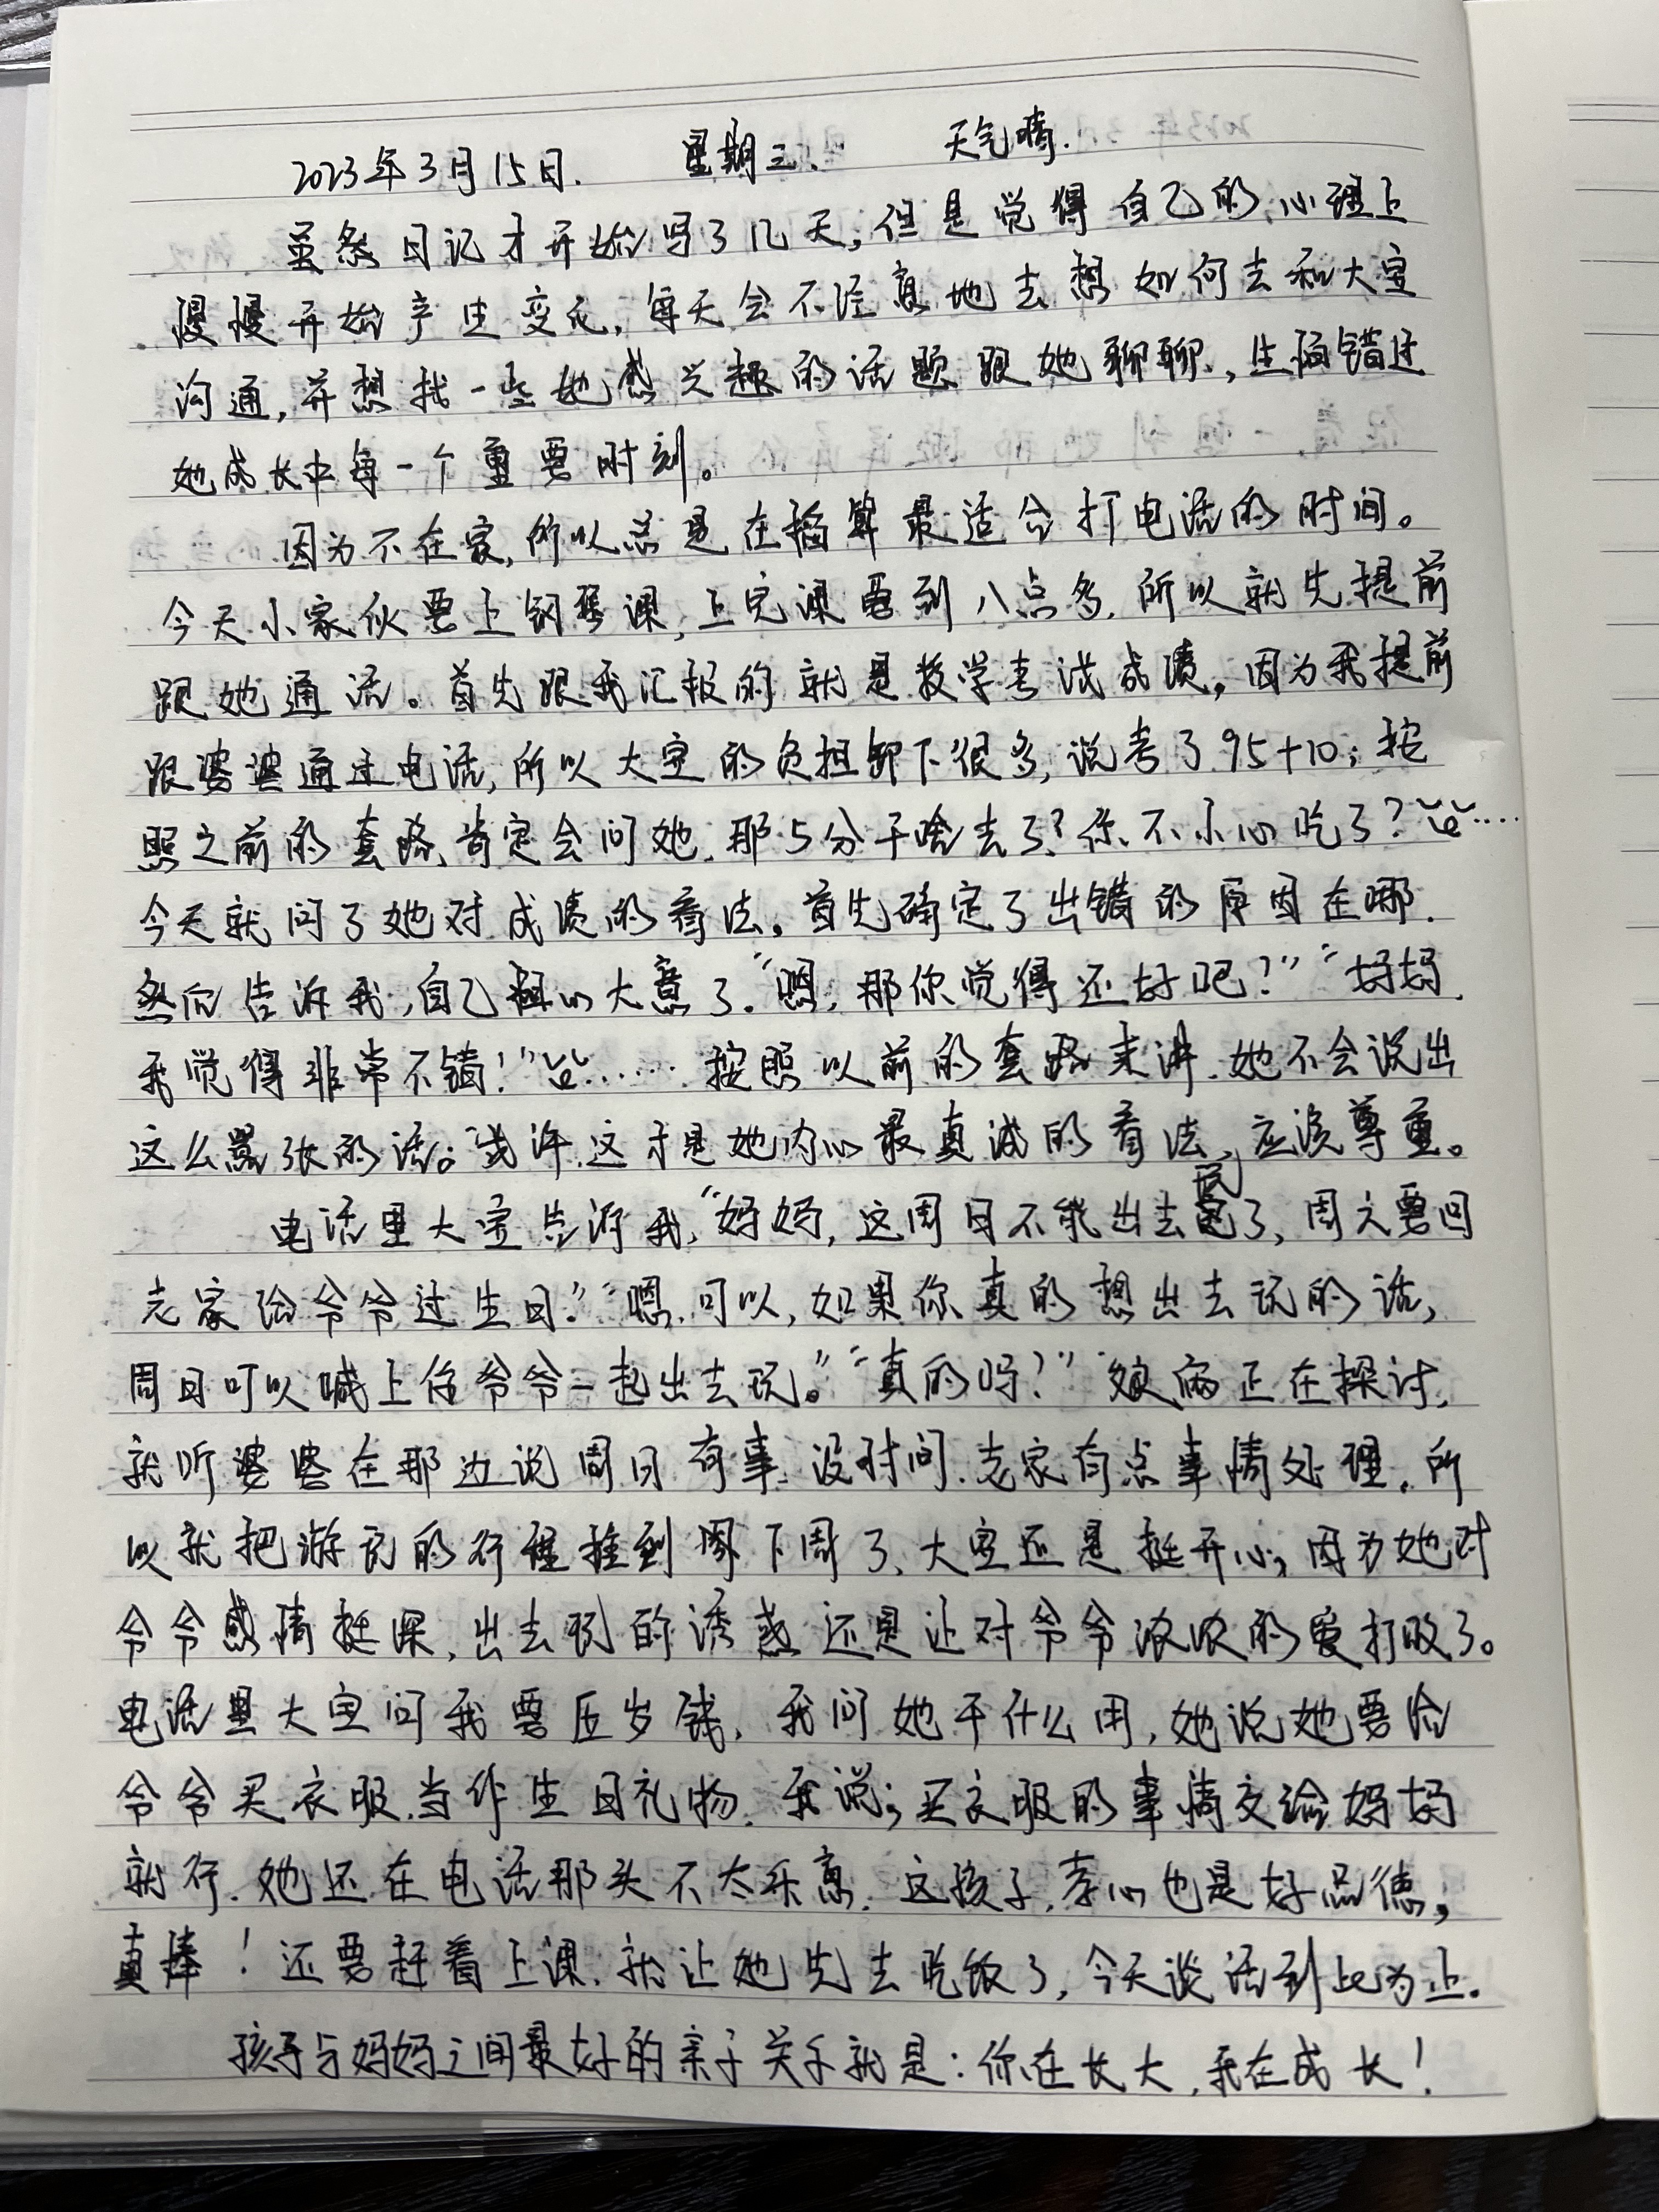 2023年3月15日. 星期三. 天气晴.
虽然日记才开始写了几天,但是觉得自己的心理上
慢慢开始产生变化,每天会不经意地去想如何去和大宝
沟通,并想找一些她感兴趣的话题跟她聊聊,生怕错过
她成长中每一个重要时刻。
因为不在家,所以总是在掐算最适合打电话的时间。
今天小家伙要上钢琴课,上完课要到八点多.所以就先提前
跟她通话。首先跟我汇报的就是数学考试成绩,因为我提前
跟婆婆通过电话,所以大宝的负担卸下很多,说考了95+10;按
照之前的套路,肯定会问她,那5分干啥去了?你不小心吃了?……
今天就问了她对成绩的看法。首先确定了出错的原因在哪.
然后告诉我,自己粗心大意了.“嗯,那你觉得还好吧?”“妈妈,
我觉得非常不错!”……按照以前的套路来讲.她不会说出
这么嚣张的话。或许这才是她内心最真诚的看法,应该尊重。
电话里大宝告诉我,“妈妈,这周日不能出去玩了,周六要回
老家给爷爷过生日.”“嗯.可以,如果你真的想出去玩的话,
周日可以喊上你爷爷一起出去玩。”“真的吗?”娘俩正在探讨,
就听婆婆在那边说周日有事没时间.老家有点事情处理.所
以就把游玩的行程推到下周了、大宝还是挺开心,因为她对
爷爷感情挺深,出去玩的诱惑还是让对爷爷浓浓的爱打败了。
电话里大宝问我要压岁钱,我问她干什么用,她说她要给
爷爷买衣服.当作生日礼物.我说;买衣服的事情交给妈妈
就行.她还在电话那头不太乐意.这孩子,孝心也是好品德,
真棒!还要赶着上课.就让她先去吃饭了,今天谈话到此为止.
孩子与妈妈之间最好的亲子关系就是:你在长大,我在成长!